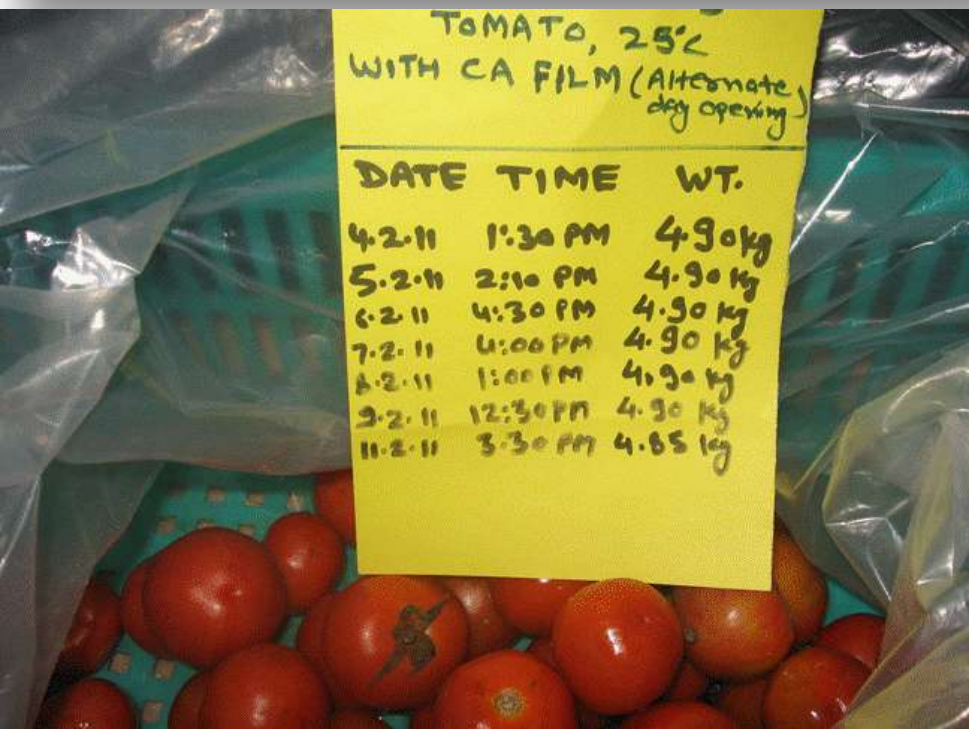 TOMATO, 25°C
WITH CA FILM (Alternate
day opening)
DATE TIME WT.
4.2.11 1:30 PM 4.90kg
5.2.11 2:10 PM 4.90 kg
6.2.11 4:30 PM 4.90 kg
7.2.11 4:00 PM 4.90 kg
8.2.11 1:00 PM 4.90 kg
9.2.11 12:30 PM 4.90 kg
11.2.11 3:30 PM 4.85 kg